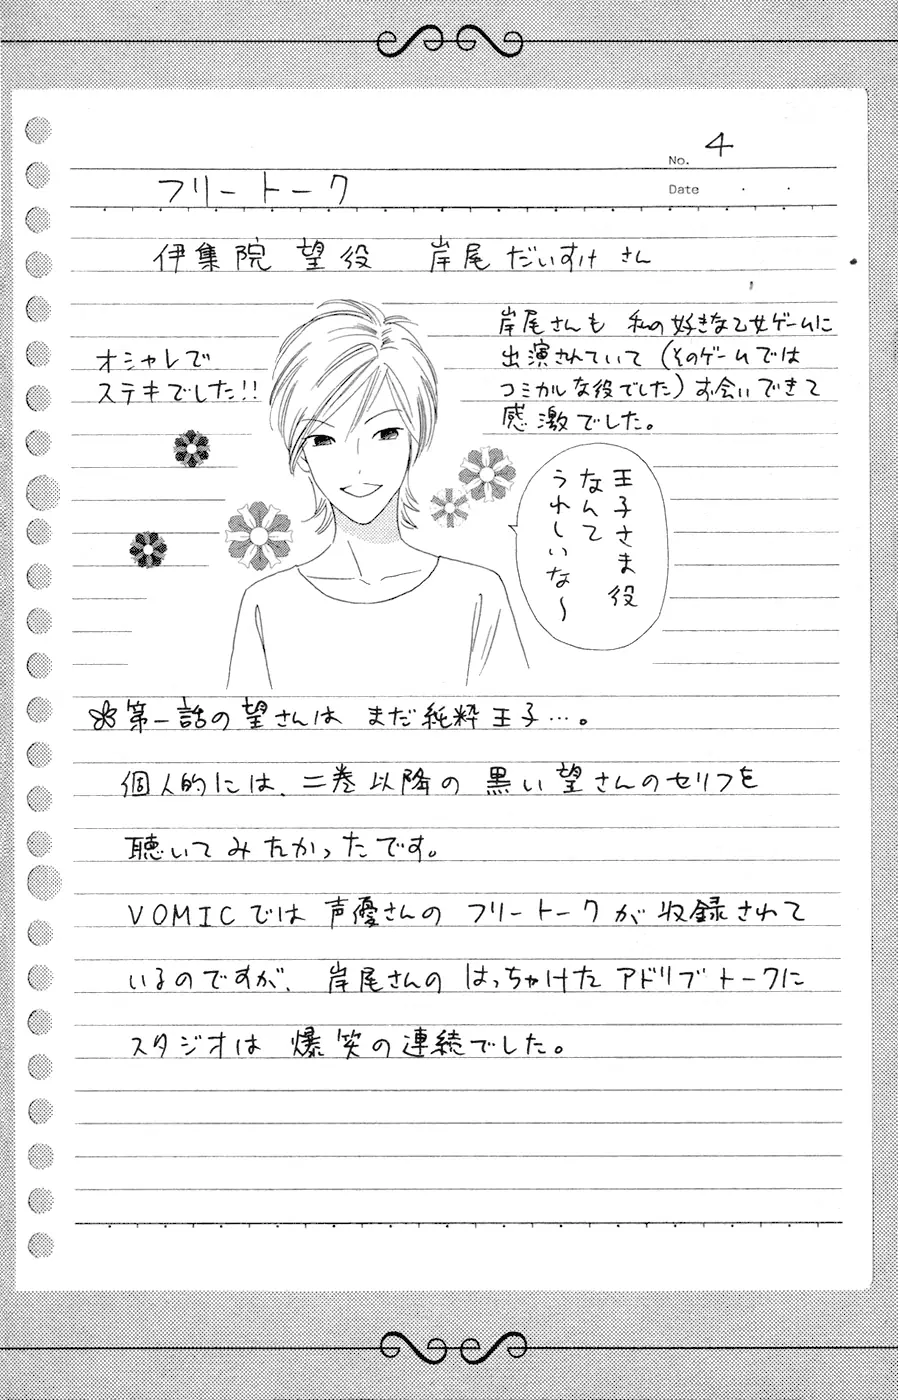 No. 4
Date
フリートーク
伊集院 望役 岸尾だいすけさん
岸尾さんも 私の好きな乙女ゲームに
出演されていて(そのゲームでは
コミカルな役でした)お会いできて
感激でした。
オシャレで
ステキでした!!
王子さま役
なんて
うれしいな〜
第一話の望さんは まだ純粋王子…。
個人的には、二巻以降の 黒い望さんのセリフを
聴いてみたかったです。
VOMICでは 声優さんの フリートークが収録されて
いるのですが、岸尾さんの はっちゃけたアドリブトークに
スタジオは 爆笑の連続でした。